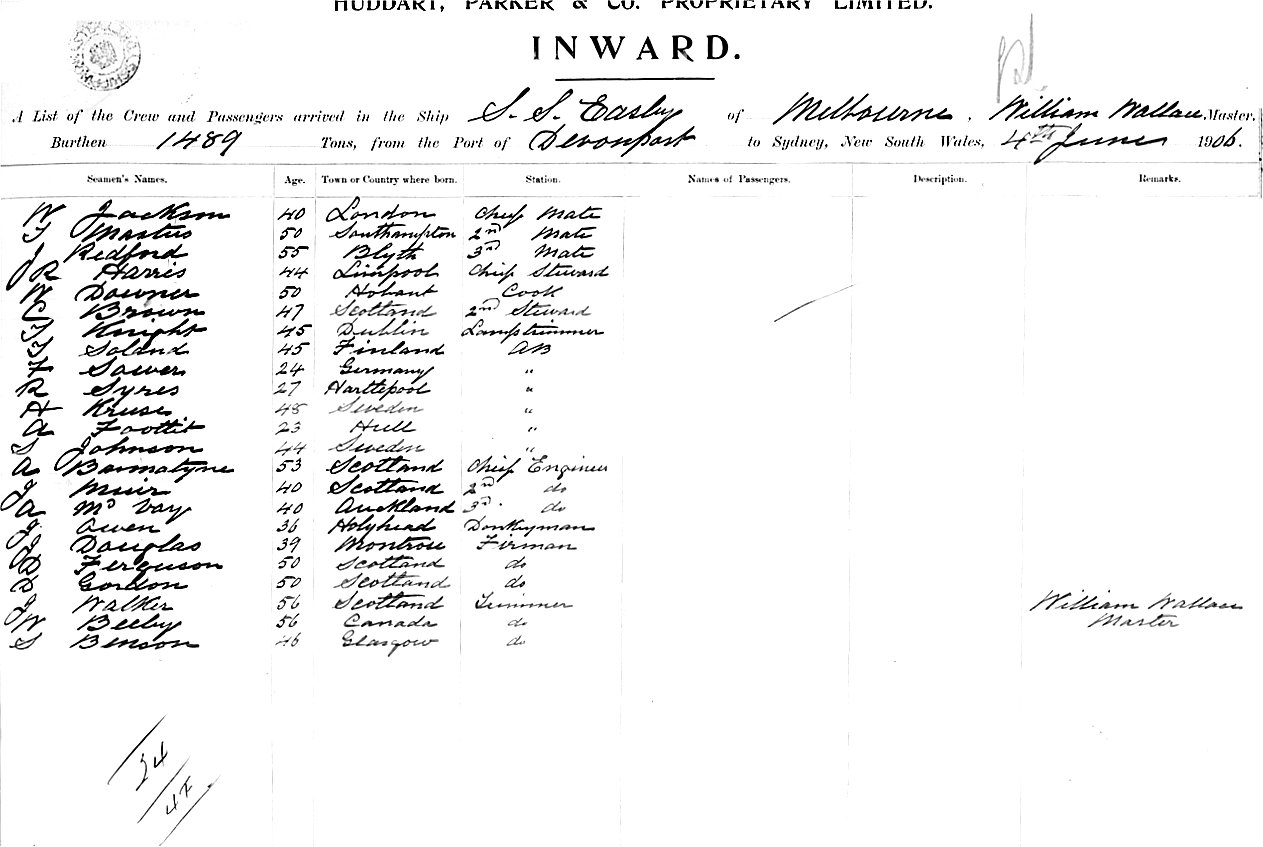 HUDDART, PARKER & CO. PROPRIETARY LIMITED.
INWARD.
A List of the Crew and Passengers arrived in the Ship S. S. Easby of Melbourne, William Wallace, Master,
Burthen 1489 Tons, from the Port of Devonport to Sydney, New South Wales, 4th June 1906.
Seamen's Names. Age. Town or Country where born. Station. Names of Passengers. Description. Remarks.
W Jackson 40 London Chief Mate
50 Southampton 2nd Mate
J Redford 55 Blyth 3rd Mate
J R Harris 44 Liverpool Chief Steward
W Downer 50 Hobart Cook
Brown 47 Scotland 2nd Steward
Knight 45 Dublin Lamptrimmer
45 Finland AB
F Sawer 24 Germany "
R Syres 27 Hartlepool "
H Kruse 48 Sweden "
A Foottit 23 Hull "
S Johnson 44 Sweden "
A Bannatyne 53 Scotland Chief Engineer
J Muir 40 Scotland 2nd do
A McVay 40 Auckland 3rd. do
J Owen 36 Holyhead Donkeyman
J Douglas 39 Montrose Firman
D Ferguson 50 Scotland do
D Gordon 50 Scotland do
J Walker 56 Scotland Trimmer William Wallace
W Beeby 56 Canada do Master
S Benson 46 Glasgow do
34